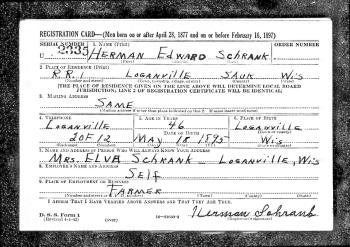 REGISTRATION CARD—(Men born on or after April 28, 1877 and on or before February 16, 1897)
SERIAL NUMBER 1. NAME (Print) ORDER NUMBER
U 2335 HERMAN EDWARD SCHRANK
2. PLACE OF RESIDENCE (Print)
R.R.1 LOGANVILLE SAUK WIS
(Number and street) (Town, township, village, or city) (County) (State)
[THE PLACE OF RESIDENCE GIVEN ON THE LINE ABOVE WILL DETERMINE LOCAL BOARD
JURISDICTION; LINE 2 OF REGISTRATION CERTIFICATE WILL BE IDENTICAL]
3. MAILING ADDRESS
SAME
[Mailing address if other than place indicated on line 2. If same insert word same]
4. TELEPHONE 5. AGE IN YEARS 6. PLACE OF BIRTH
LOGANVILLE 46 LOGANVILLE
DATE OF BIRTH (Town or county)
20F12 MAY 10 1895 WIS
(Exchange) (Number) (Mo.) (Day) (Yr.) (State or country)
7. NAME AND ADDRESS OF PERSON WHO WILL ALWAYS KNOW YOUR ADDRESS
MRS. ELVA SCHRANK - LOGANVILLE, WIS
8. EMPLOYER'S NAME AND ADDRESS
SELF
9. PLACE OF EMPLOYMENT OR BUSINESS
FARMER
(Number and street or R. F. D. number) (Town) (County) (State)
I AFFIRM THAT I HAVE VERIFIED ABOVE ANSWERS AND THAT THEY ARE TRUE.
D. S. S. Form 1
(Revised 4-1-42) (over) Herman Schrank
(Registrant's signature)